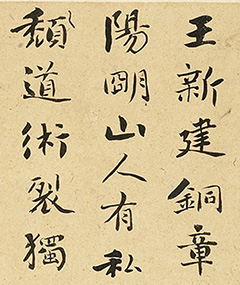 王新建銅章
陽明山人有私
頹道術裂獨